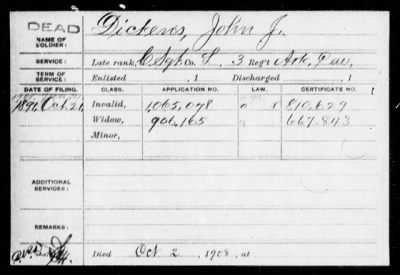 DEAD
NAME OF SOLDIER: Dickens, John J.
SERVICE: Late rank, C Sgt, Co. L, 3 Reg't Ark. Cav.
TERM OF SERVICE: Enlisted , 1 Discharged , 1
DATE OF FILING. CLASS. APPLICATION NO. LAW. CERTIFICATE NO.
1891 Oct. 21 Invalid, 1,065,048 810,629
Widow, 906,165 667,843
Minor,
ADDITIONAL SERVICES:
REMARKS:
Died Oct 2, 1908, at